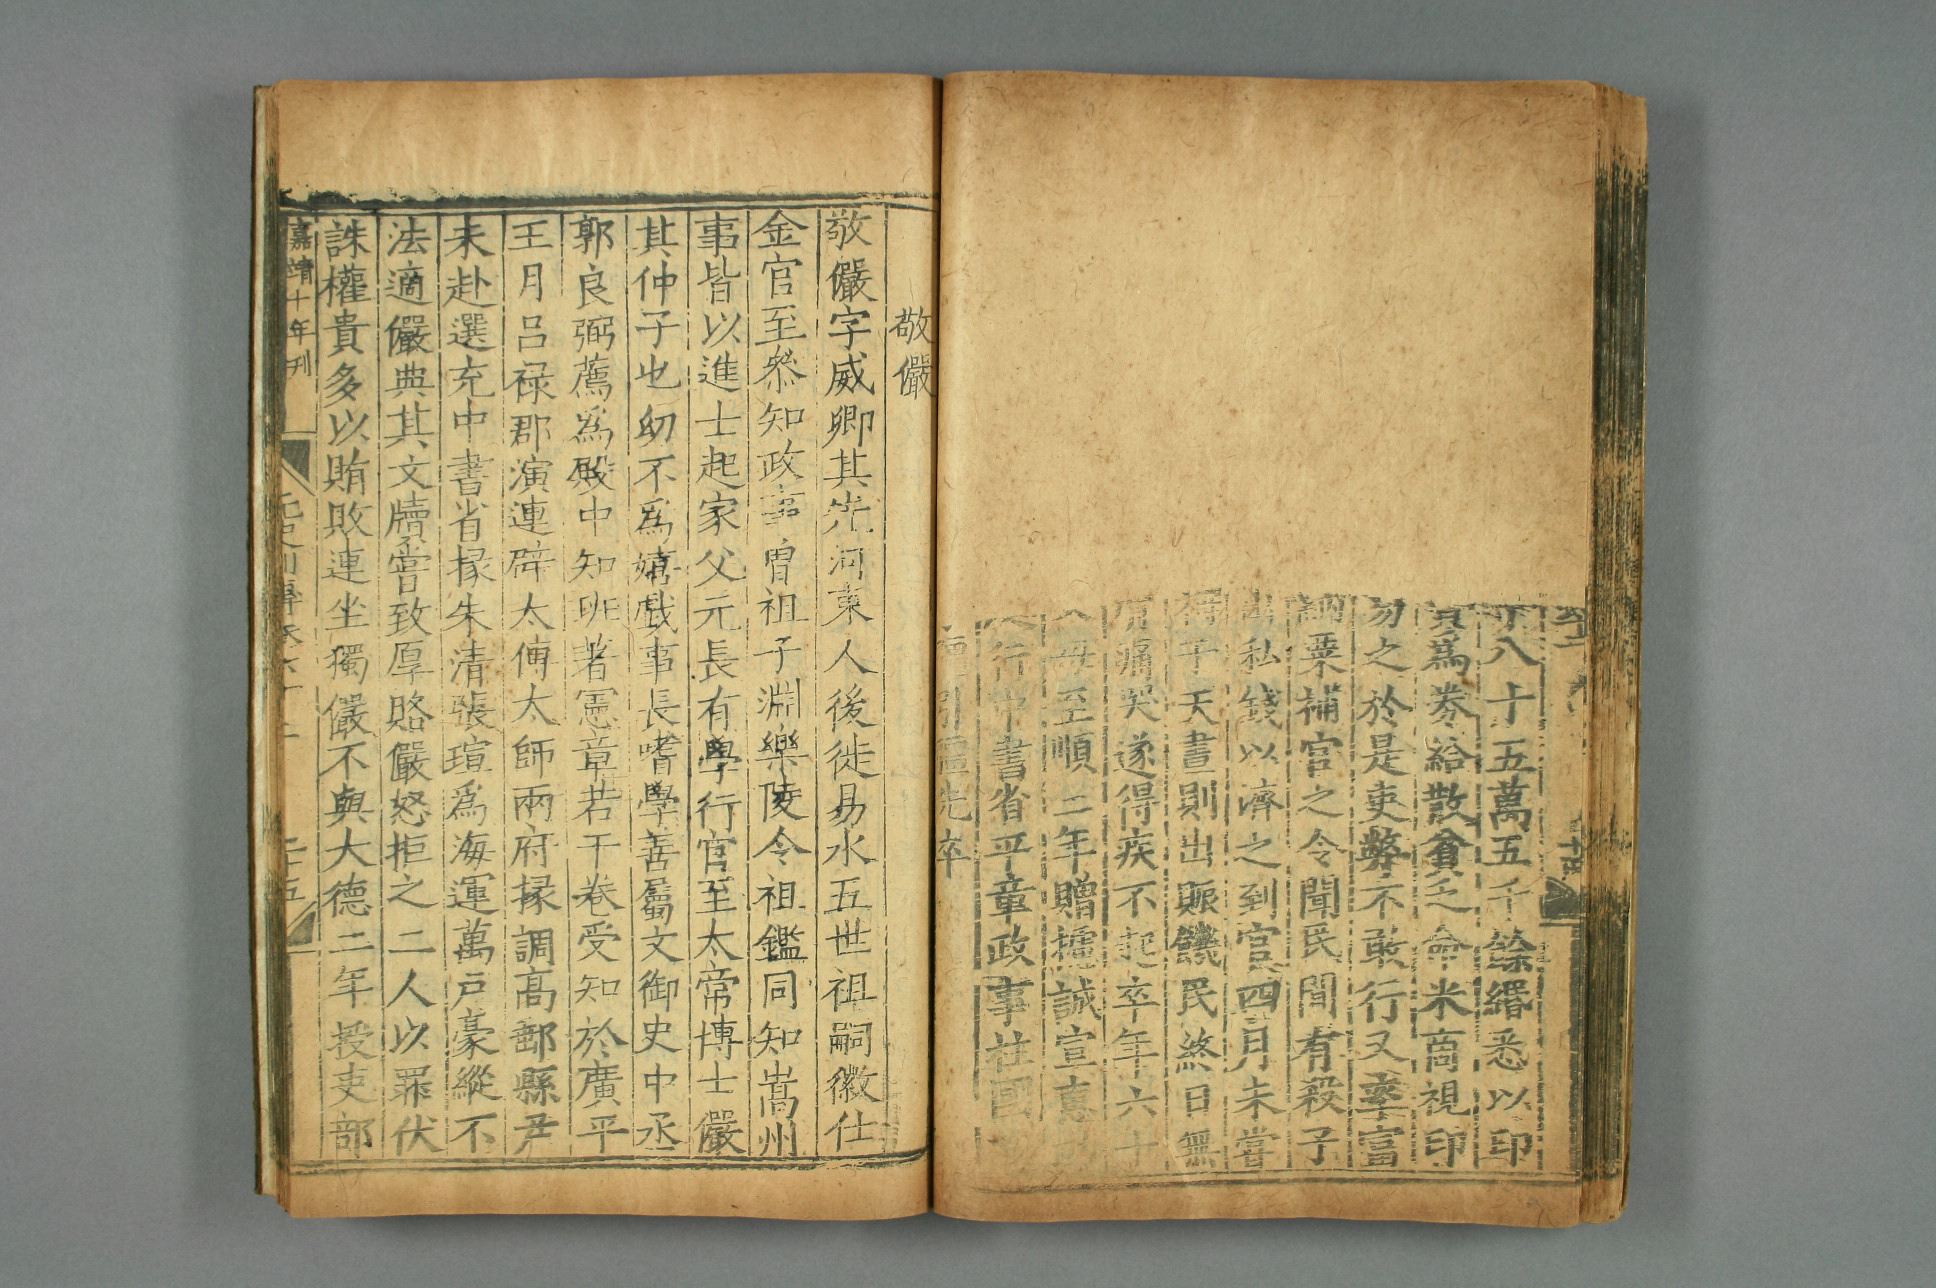 十八十五萬五千餘緡悉以印
為券給散貧乏命米商視印
之於是吏弊不敢行又率富
納粟補官之令聞民間有殺子
出私錢以濟之到官四月未嘗
于天晝則出賑饑民終日無
痛哭遂得疾不起卒年六十
至順二年贈攄誠宣惠
行中書省平章政事柱國
引 先卒
敬儼
敬儼字威卿其先河東人後徙易水五世祖嗣徽仕
金官至叅知政事曾祖子淵樂陵令祖鑑同知嵩州
事皆以進士起家父元長有學行官至太常博士儼
其仲子也幼不為嬉戲事長嗜學善屬文御史中丞
郭良弼薦為殿中知班著憲章若干卷受知於廣平
王月呂祿郡演連辟太傅太師兩府掾調高郵縣尹
未赴選充中書省掾朱清張瑄為海運萬戶豪縱不
法適儼典其文牘嘗致厚賂儼怒拒之二人以罪伏
誅權貴多以賄敗連坐獨儼不與大德二年授吏部
嘉靖十年刊
二十五